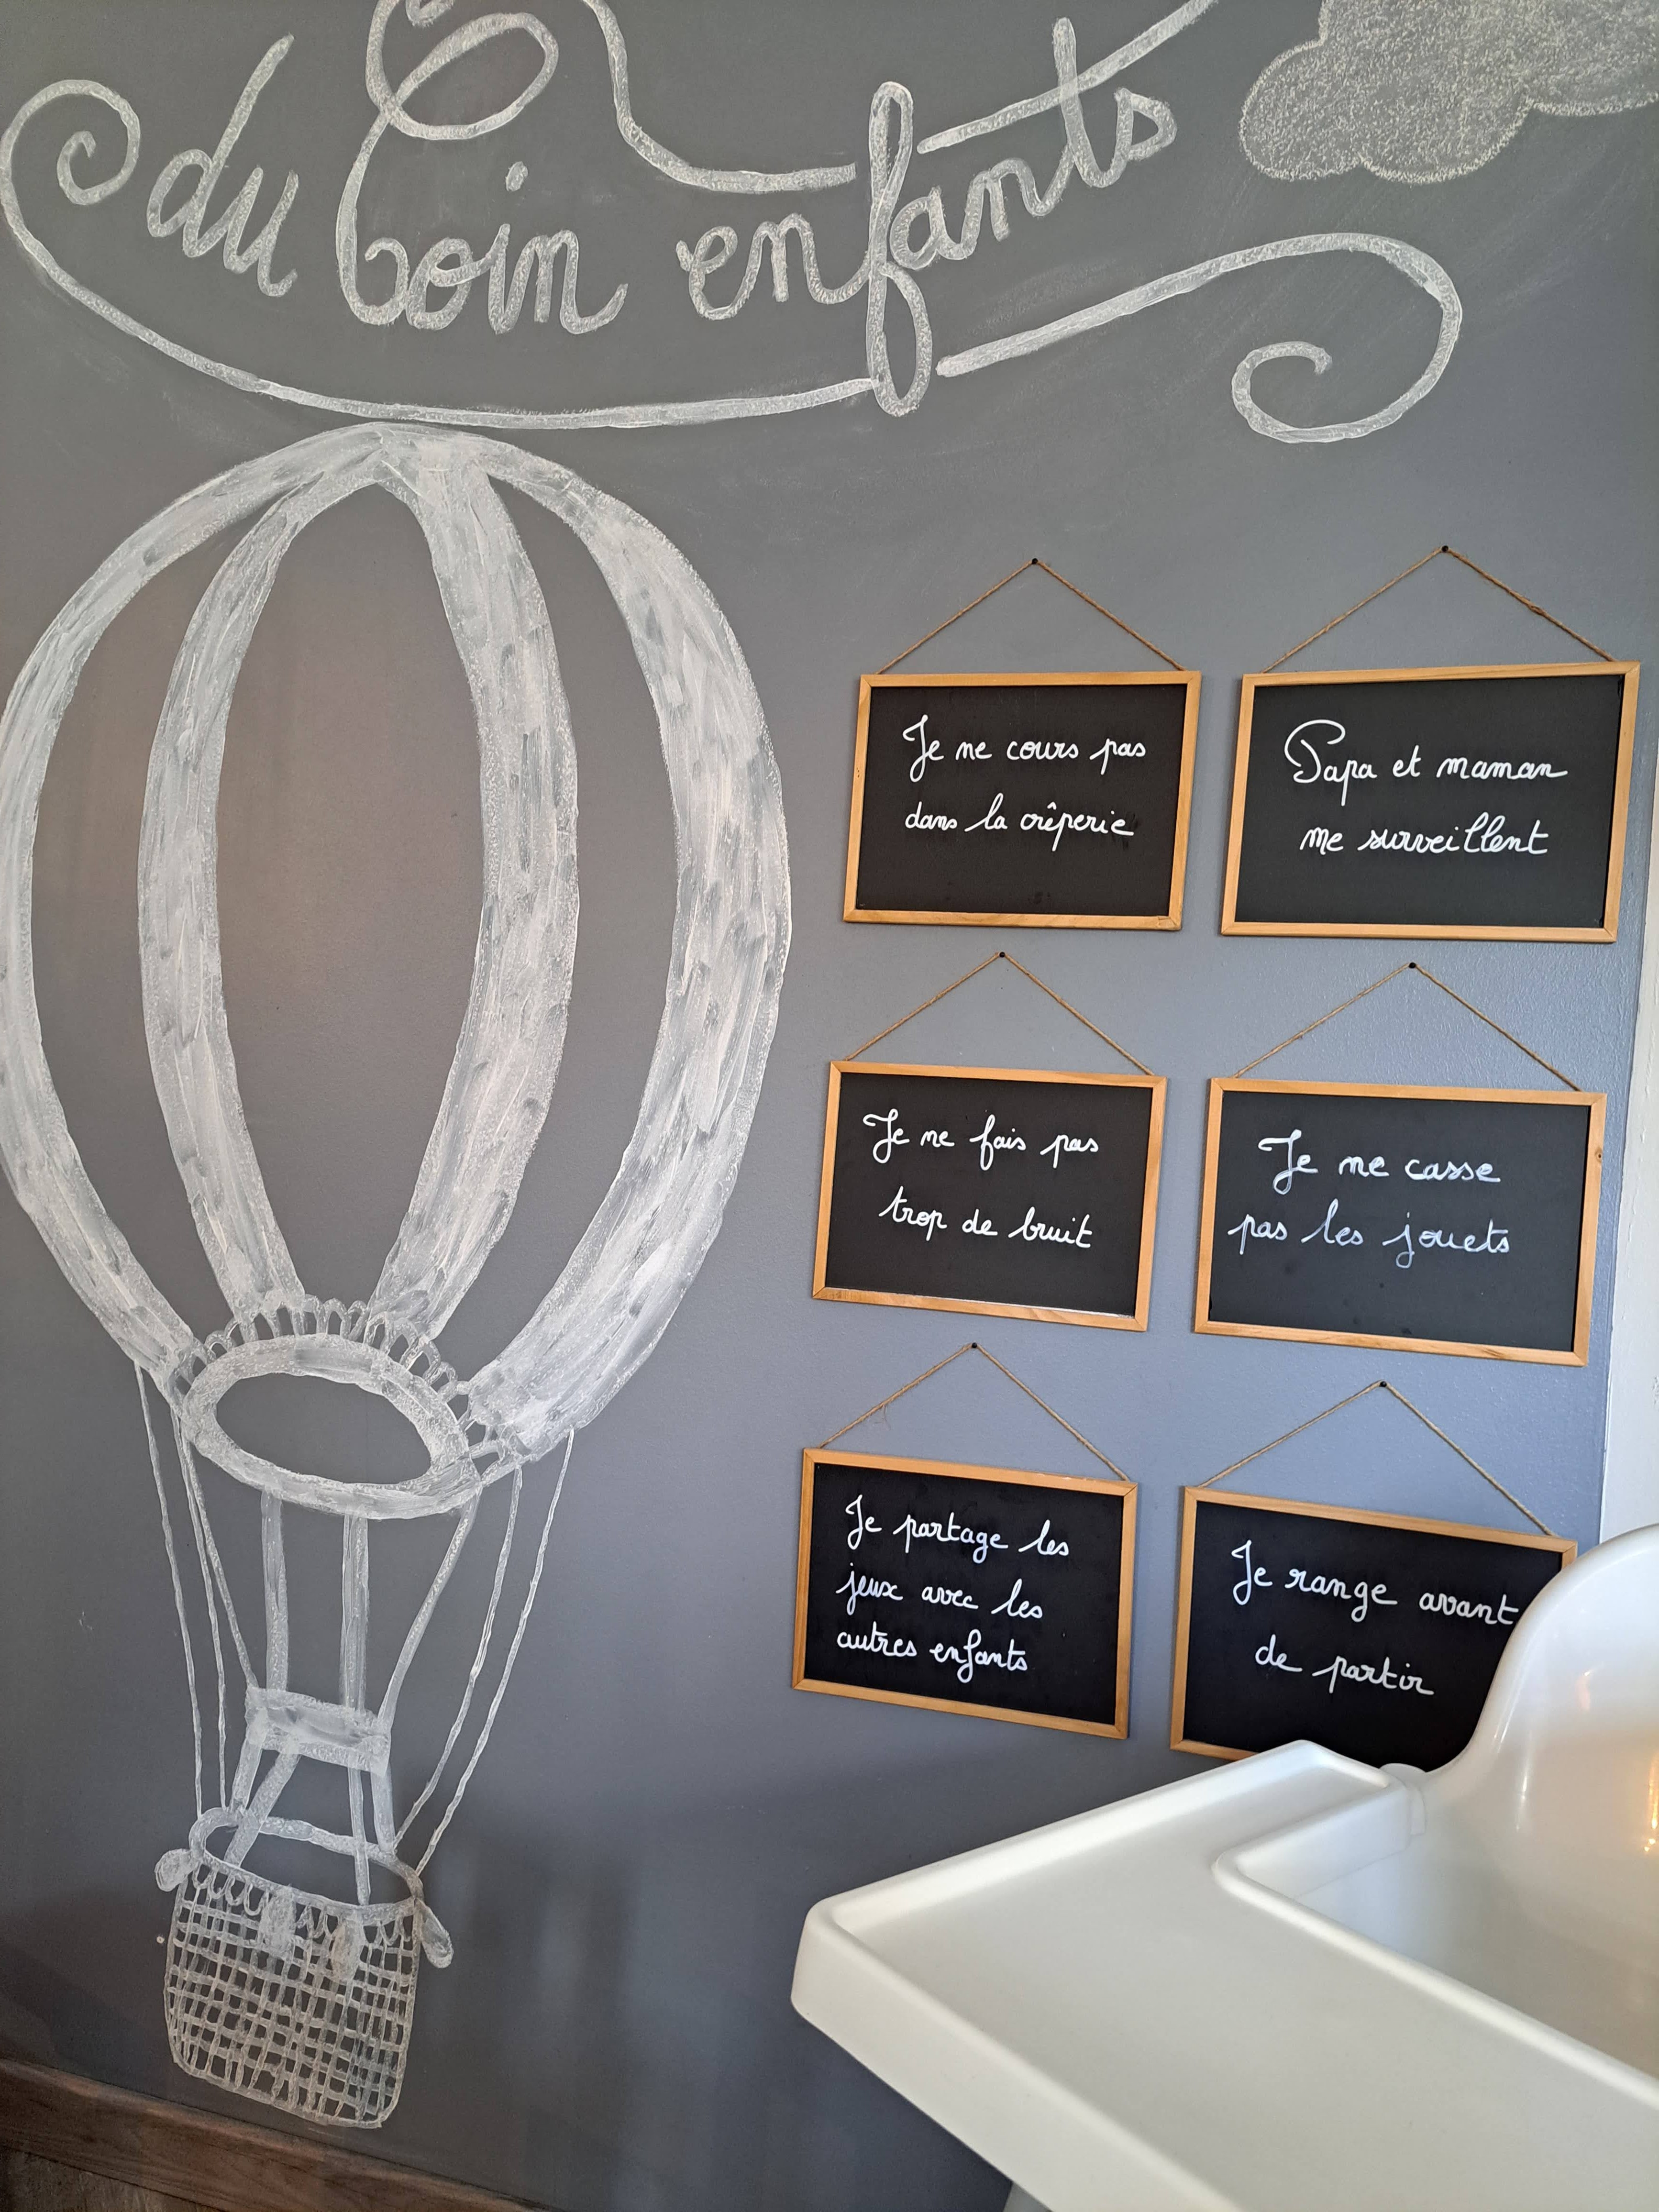 du coin enfants
Je ne cours pas
dans la crêperie
Papa et maman
me surveillent
Je ne fais pas
trop de bruit
Je ne casse
pas les jouets
Je partage les
jeux avec les
autres enfants
Je range avant
de partir